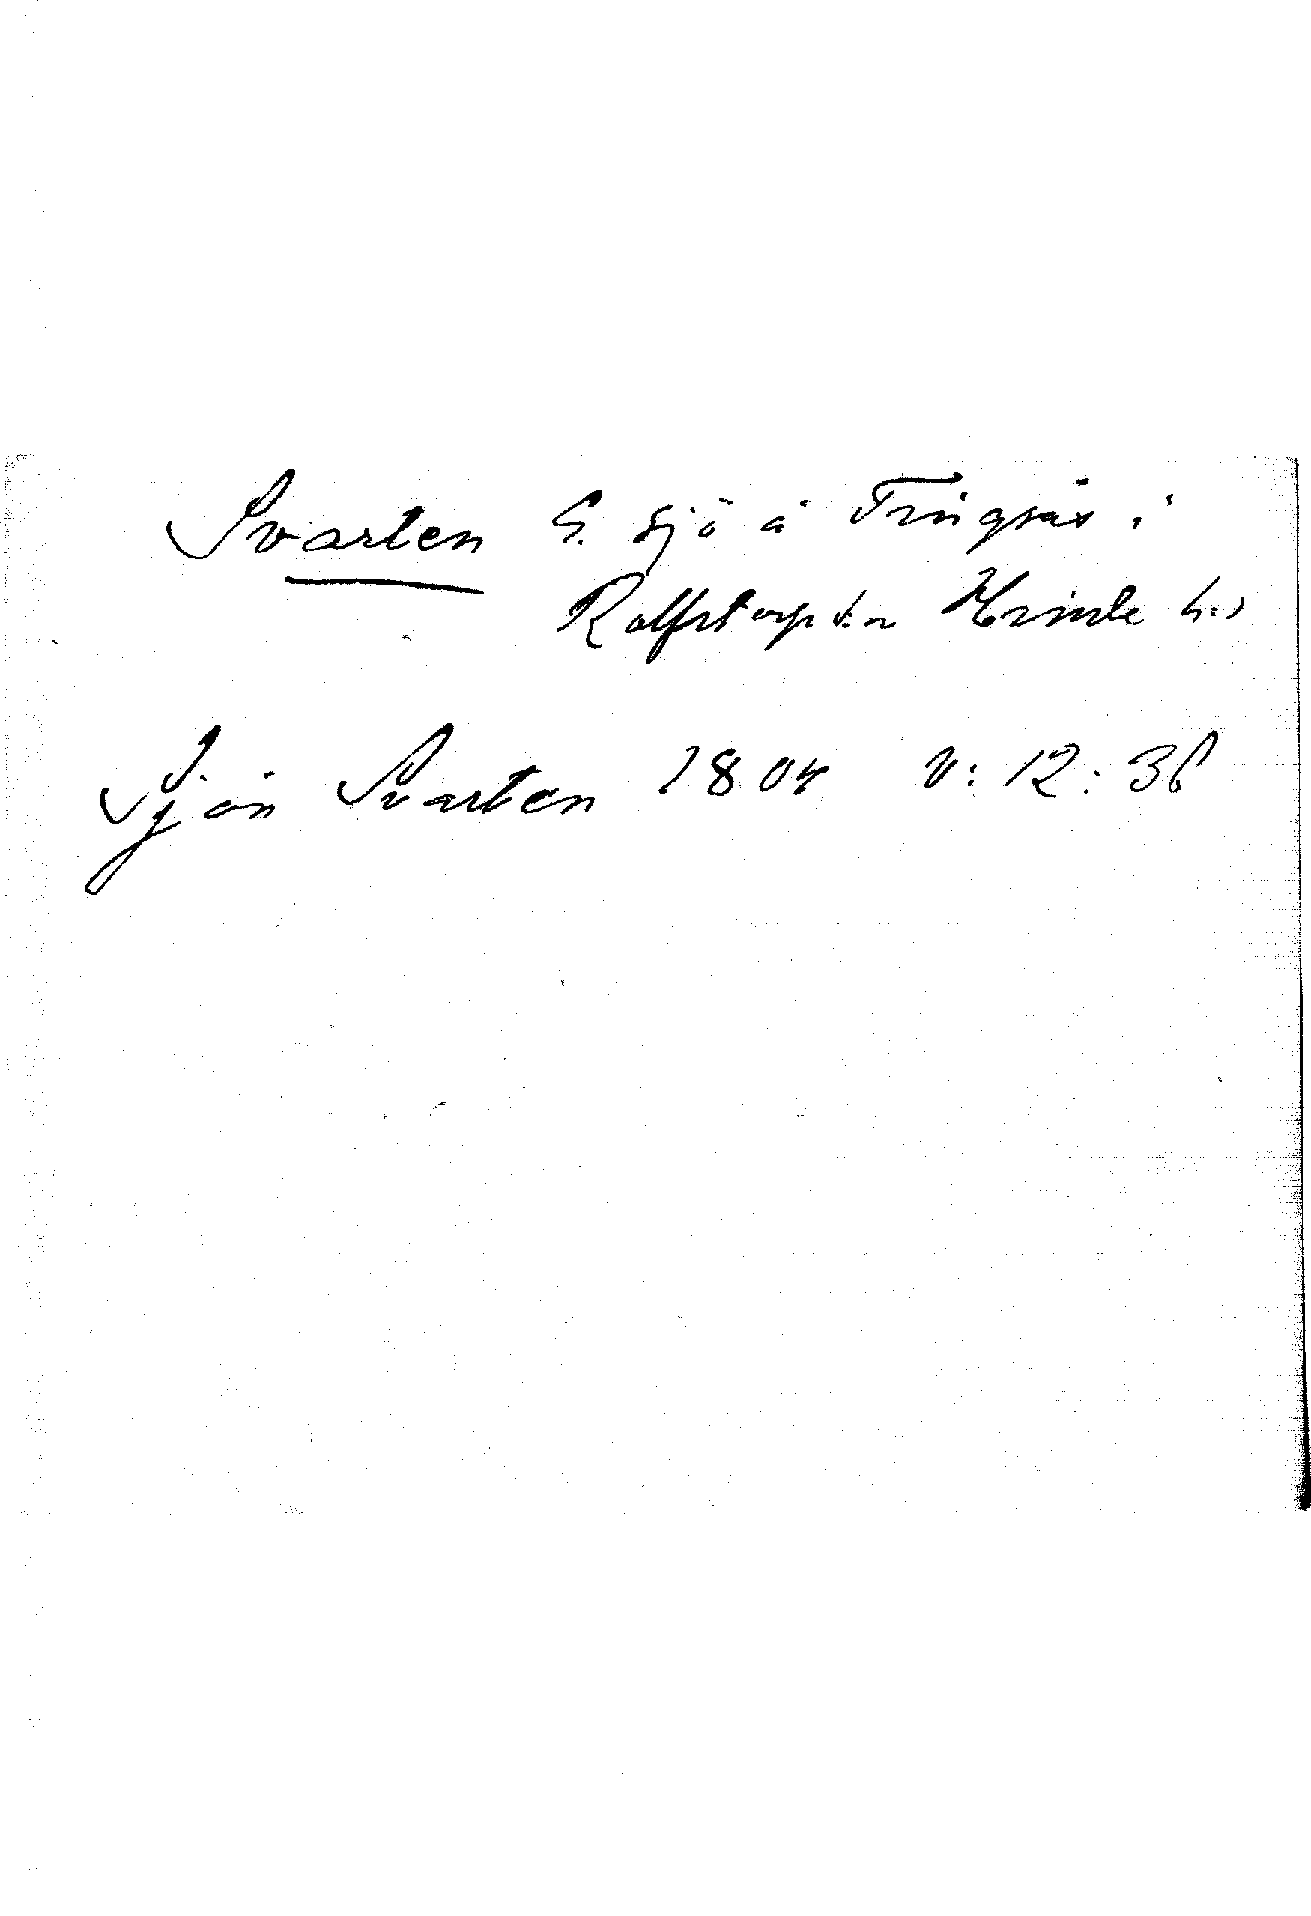 Svarten G. sjö å Tringsås i
Rolfstorp sn Himle h.)
Sjön Svarten 1804 V: 12: 38